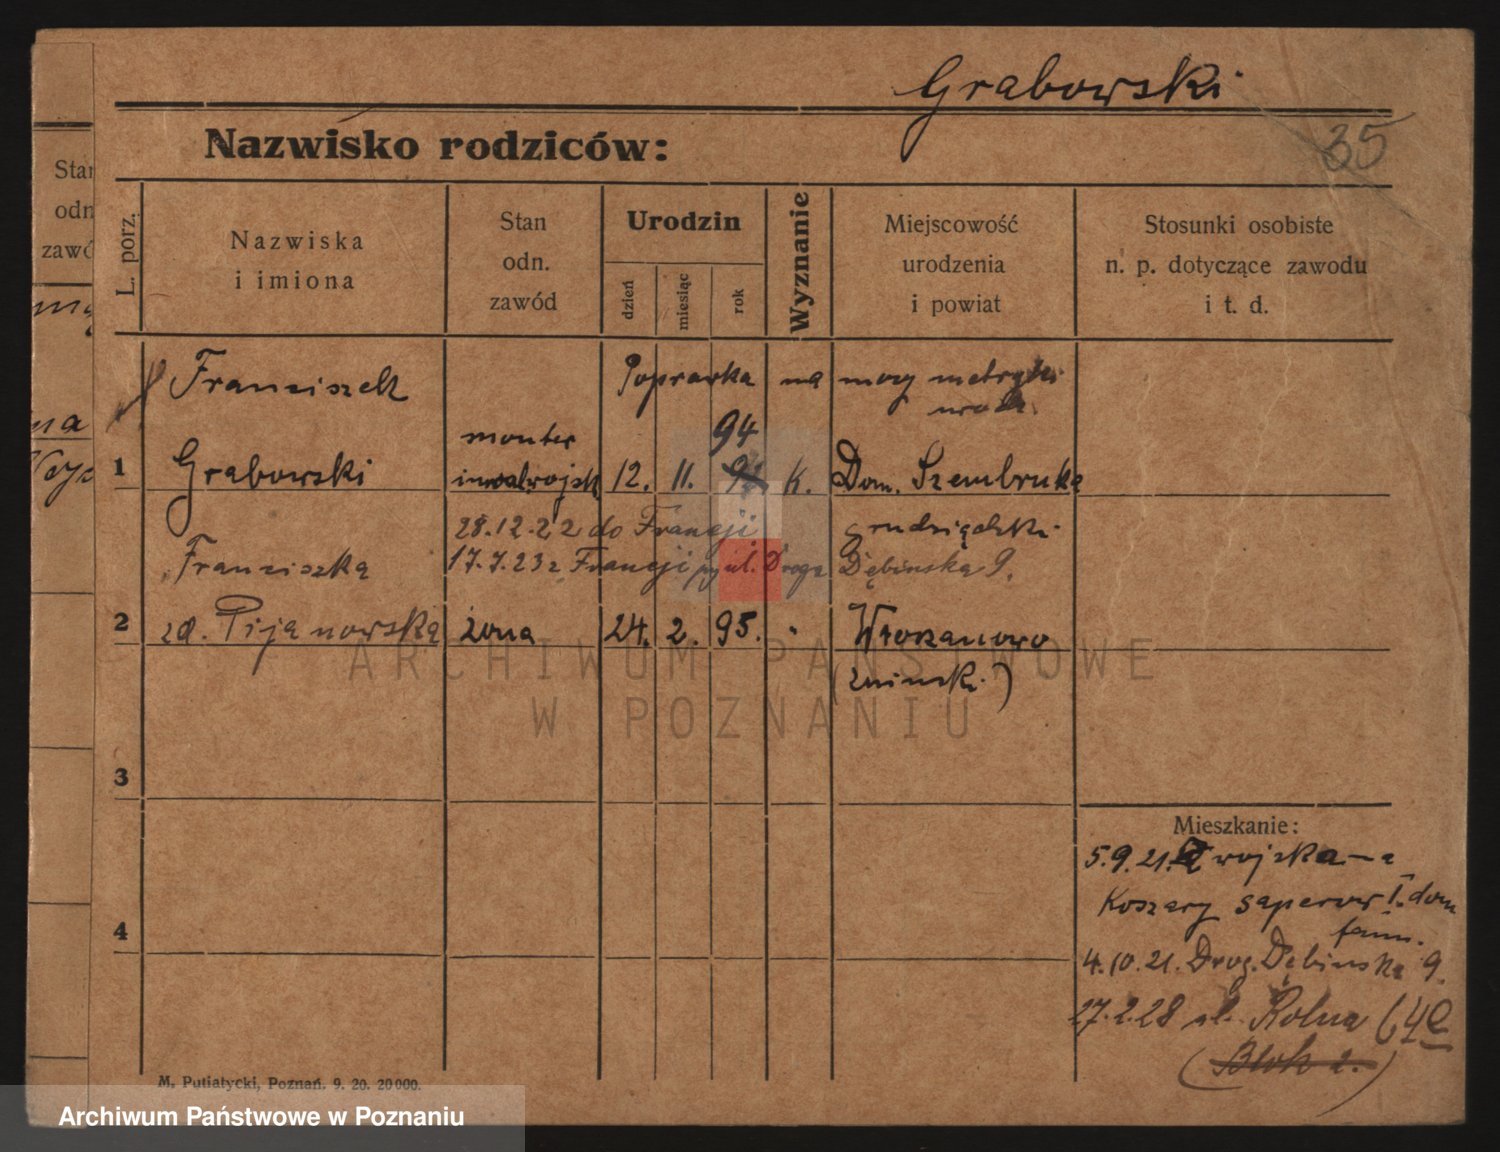 Grabowski
35
Nazwisko rodziców:
L. porz.
Nazwiska
i imiona
Stan
odn.
zawód
Urodzin
dzień
miesiąc
rok
Wyznanie
Miejscowość
urodzenia
i powiat
Stosunki osobiste
n. p. dotyczące zawodu
i t. d.
Franciszek
Poprawka na mocy metryki
urodz.
monter 94
1 Grabowski inwal. wojsk 12. 11. K. Dom. Szembruka
28.12.22 do Francji grudziądzki
Franciszka 17.7.23 z Francji ul. Droga Dębińska 9.
2 zd. Pijanowska żona 24. 2. 95. " Włoszanowo
(żninski.)
3
4
Mieszkanie:
5.9.21. Z wojska
Koszary saperów I. dom
fam.
4.10.21. Drog. Dębinska 9.
27.2.28 ul. Rolna 64e
(Blok 2.)
M. Putiatycki, Poznań. 9. 20. 20000.
Stan
odn
zawó
na
ARCHIWUM PAŃSTWOWE
W POZNANIU
Archiwum Państwowe w Poznaniu